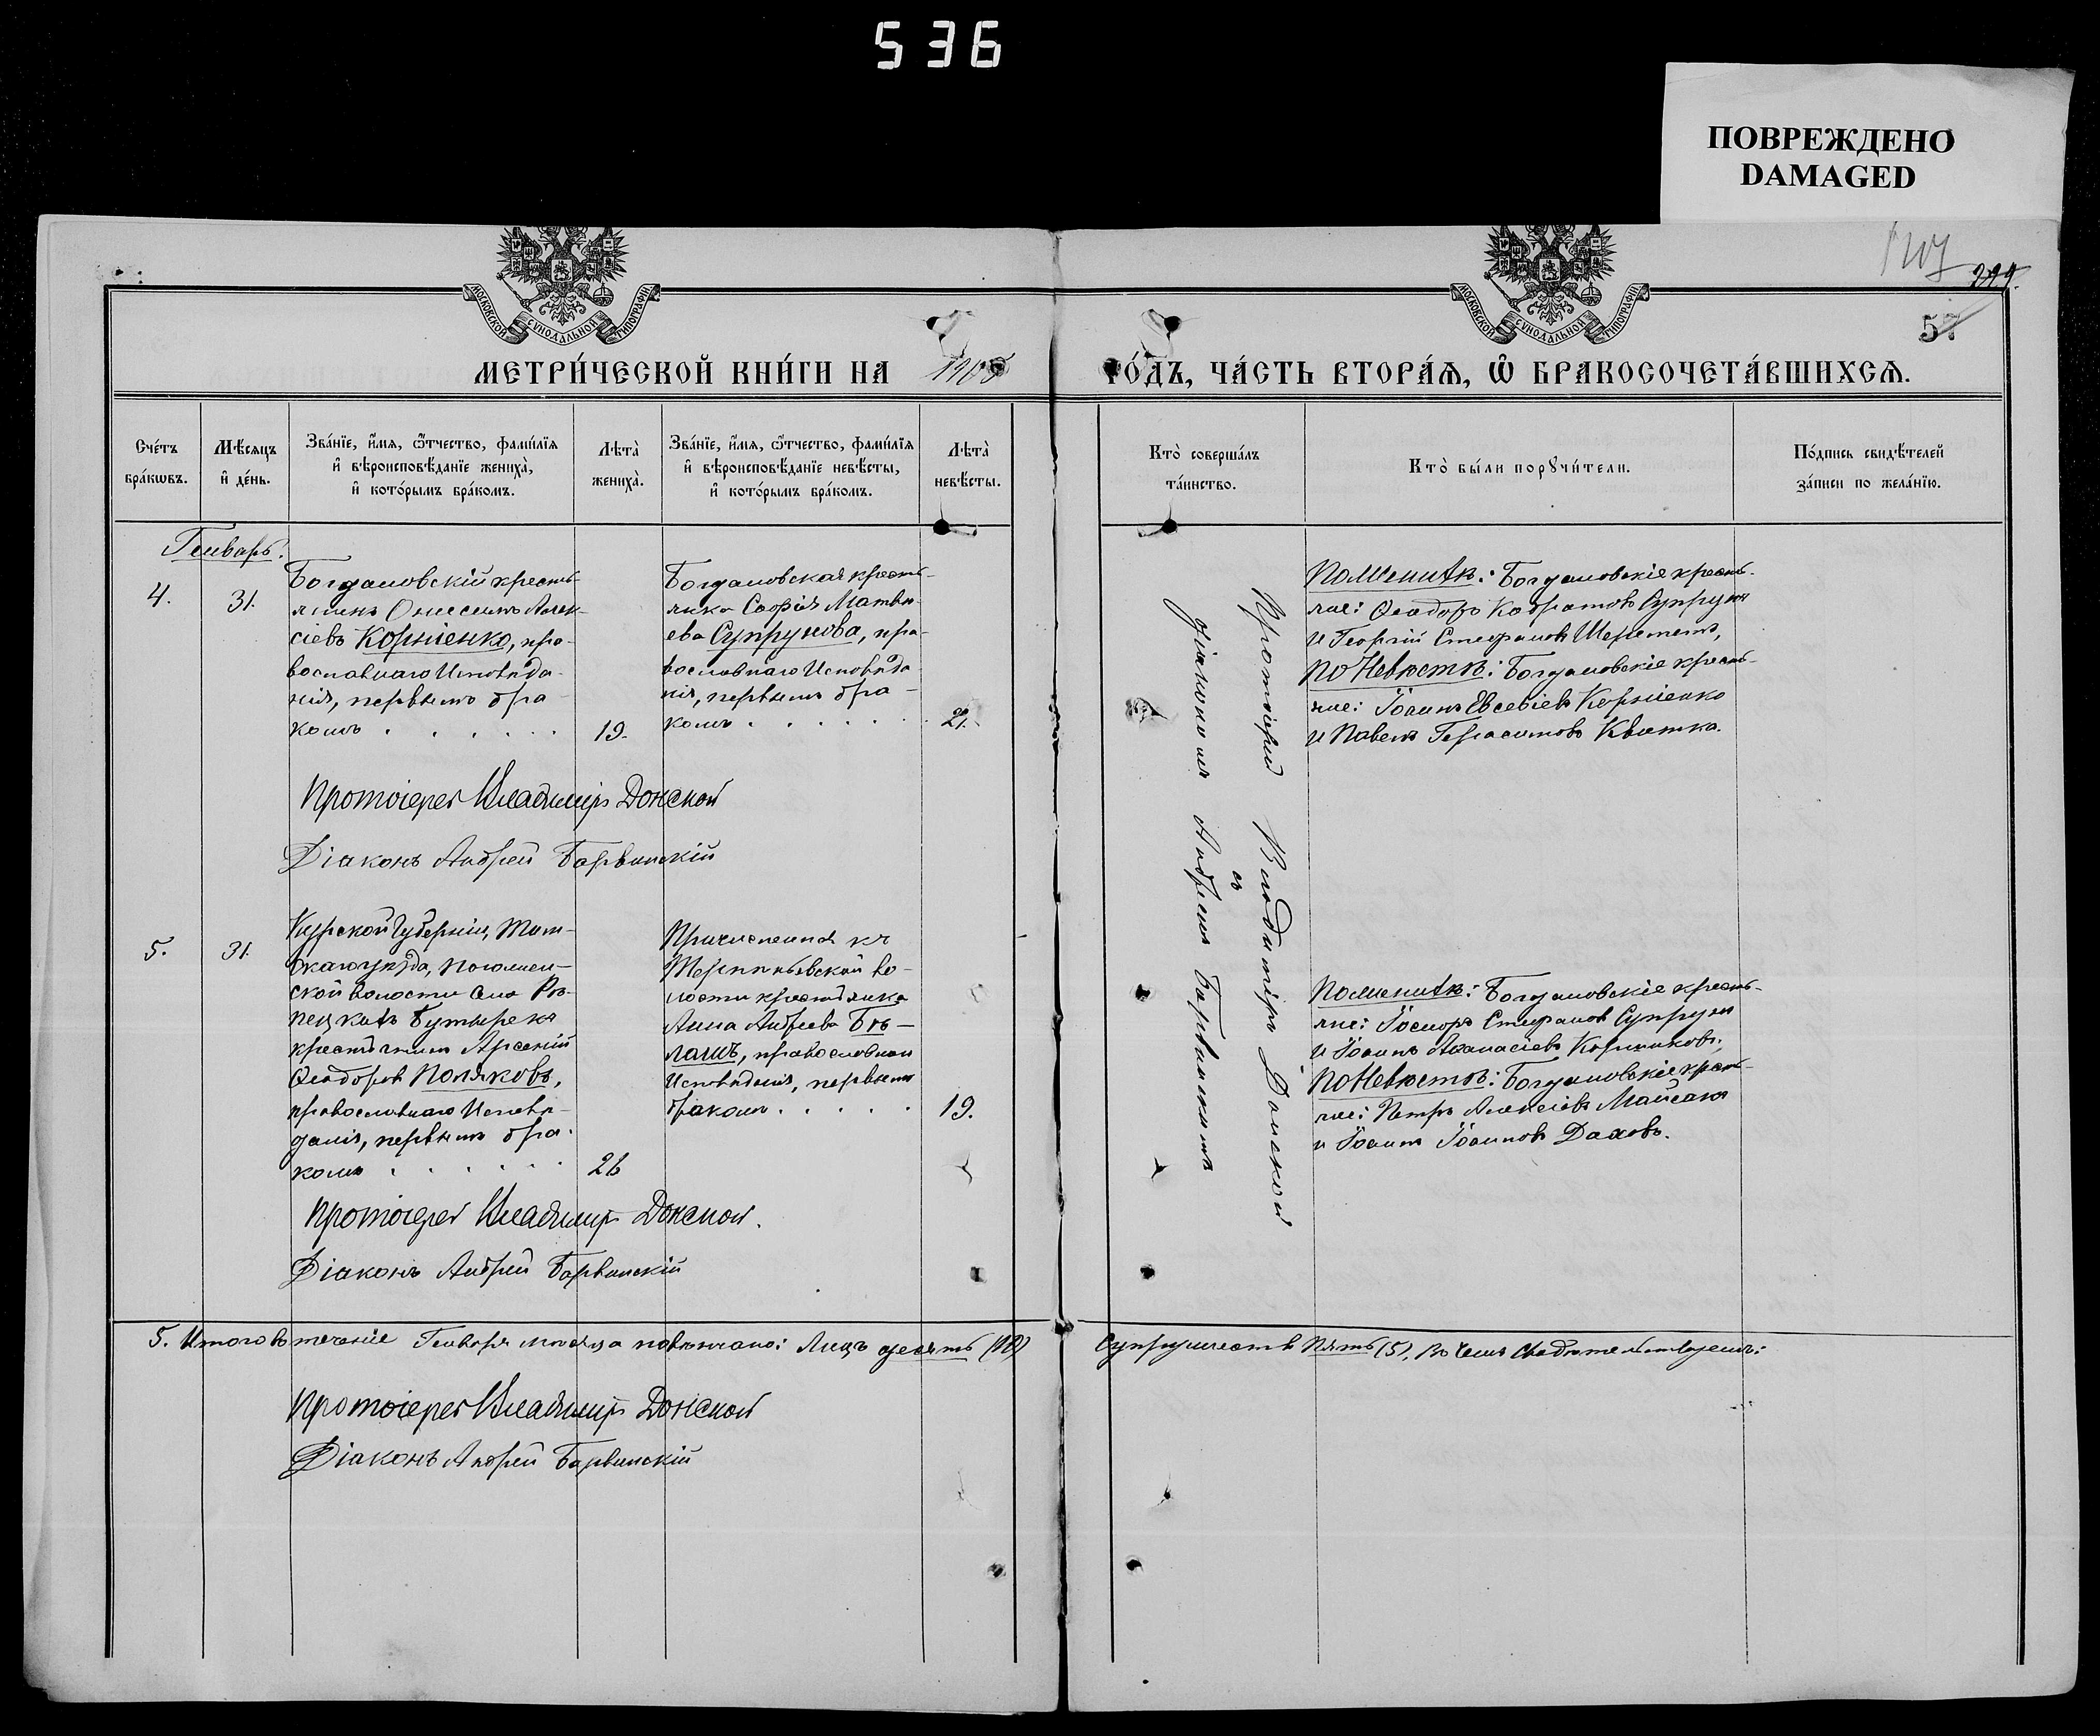 536
ПОВРЕЖДЕНО
DAMAGED
299.
57
МОСКОВСКОЙ СѴНОДАЛЬНОЙ ТИПОГРАФІИ
МОСКОВСКОЙ СѴНОДАЛЬНОЙ ТИПОГРАФІИ
МЕТРИ́ЧЕСКОЙ КНИ́ГИ НА 1905 ГО́ДЪ, ЧА́СТЬ ВТОРА́Ѧ, Ѽ БРАКОСОЧЕТА́ВШИХСѦ.
Сче́тъ
бра́кѡвъ.
Мѣ́сяцъ
и҆ де́нь.
Зва́нїе, и҆́мя, ѻ҆́тчество, фами́лїя
и҆ вѣроисповѣ́данїе жениха̀,
и҆ кото́рымъ бра́комъ.
Лѣта̀
жениха̀.
Зва́нїе, и҆́мя, ѻ҆́тчество, фами́лїя
и҆ вѣроисповѣ́данїе невѣ́сты,
и҆ кото́рымъ бра́комъ.
Лѣта̀
невѣ́сты.
Кто̀ соверша́лъ
та́инство.
Кто̀ бы́ли порꙋчи́тели.
По́дпись свидѣ́телей
за́писи по жела́нїю.
Генварь.
4.
31.
Богдановскій кресть-
янинъ Онисимъ Алек-
сіевъ Корніенко, пра-
вославнаго Исповѣда-
нія, первымъ бра-
комъ
19.
Богдановская кресть-
янка Софія Матвѣ-
ева Супрунова, пра-
вославнаго Исповѣда-
нія, первымъ бра-
комъ
21.
Протоіерей Владиміръ Донской
съ
діакономъ Андреемъ Барвинскимъ
По Женихѣ: Богдановскіе кресть-
яне: Ѳеодоръ Кодратовъ Супрунъ
и Георгій Стефановъ Шереметъ,
По Невѣстѣ: Богдановскіе кресть-
яне: Іоаннъ Евсевіевъ Корніенко
и Павелъ Герасимовъ Квитка.
Протоіерей Владиміръ Донской
Діаконъ Андрей Барвинскій
5.
31.
Курской Губерніи,
скаго уѣзда,
ской волости села Рѣ-
Бутырекъ
крестьянинъ Арсеній
Ѳеодоровъ Поляковъ,
православнаго Исповѣ-
данія, первымъ бра-
комъ
26
Причисленная къ
Терпѣньевской во-
лости крестьянка
Анна Андреева Бѣ-
лашъ, православнаго
Исповѣданія, первымъ
бракомъ
19.
По Женихѣ: Богдановскіе кресть-
яне: Іосифъ Стефановъ Супрунъ
и Іоаннъ Аѳанасіевъ Корниковъ;
По Невѣстѣ: Богдановскіе кресть-
яне: Петръ Алексіевъ Майсакъ
и Іоаннъ Іоанновъ Даховъ.
Протоіерей Владиміръ Донской.
Діаконъ Андрей Барвинскій
5. Итого въ теченіе Генваря мѣсяца повѣнчано: Лицъ десять (10) Супружествъ Пять (5), Въ чемъ свидѣтельствуемъ:
Протоіерей Владиміръ Донской
Діаконъ Андрей Барвинскій